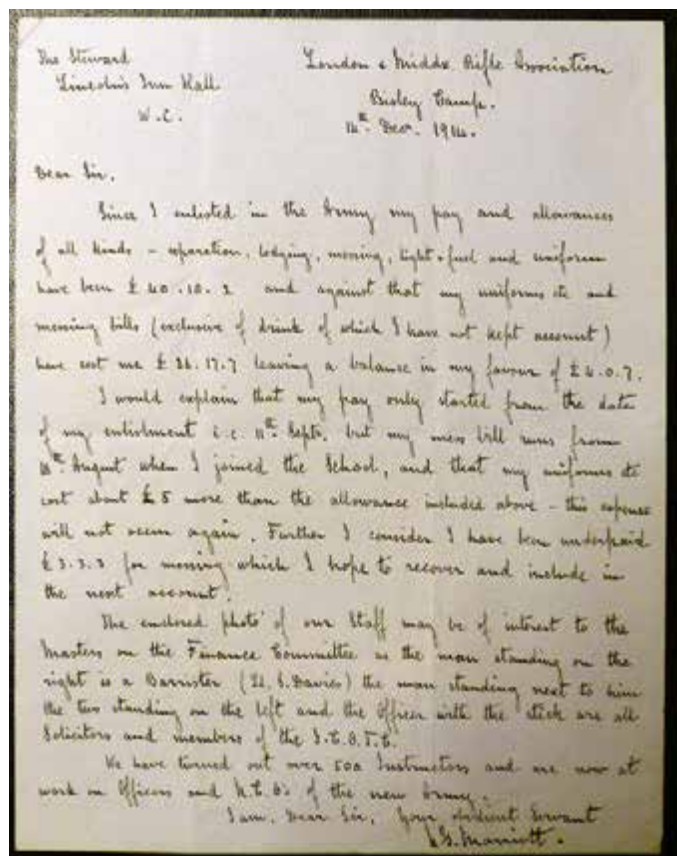 The Steward
Lincoln's Inn Hall
W.C.
London & Middx Rifle Association
Bisley Camp.
Decr. 1914.
Dear Sir,
Since I enlisted in the Army my pay and allowances
of all kinds – separation, lodging, messing, light & fuel and uniform
have been £40.18.2 and against that my uniforms etc and
messing bills (exclusive of drink of which I have not kept account)
have cost me £36.17.7 leaving a balance in my favour of £4.0.7.
I would explain that my pay only started from the date
of my enlistment i.e. Septr. but my mess bill runs from
August when I joined the School, and that my uniforms etc
cost about £5 more than the allowance included above – this expense
will not occur again. Further I consider I have been underpaid
£3.3.3 for messing which I hope to recover and include in
the next account.
The enclosed photo' of our Staff may be of interest to the
Masters on the Finance Committee as the man standing on the
right is a Barrister (Davies) the man standing next to him
the two standing on the left and the Officer with the stick are all
Solicitors and members of the I.C.O.T.C.
We have turned out over 500 Instructors and are now at
work on Officers and N.C.O's of the new Army.
I am, Dear Sir, Your obedient Servant
Marriott.